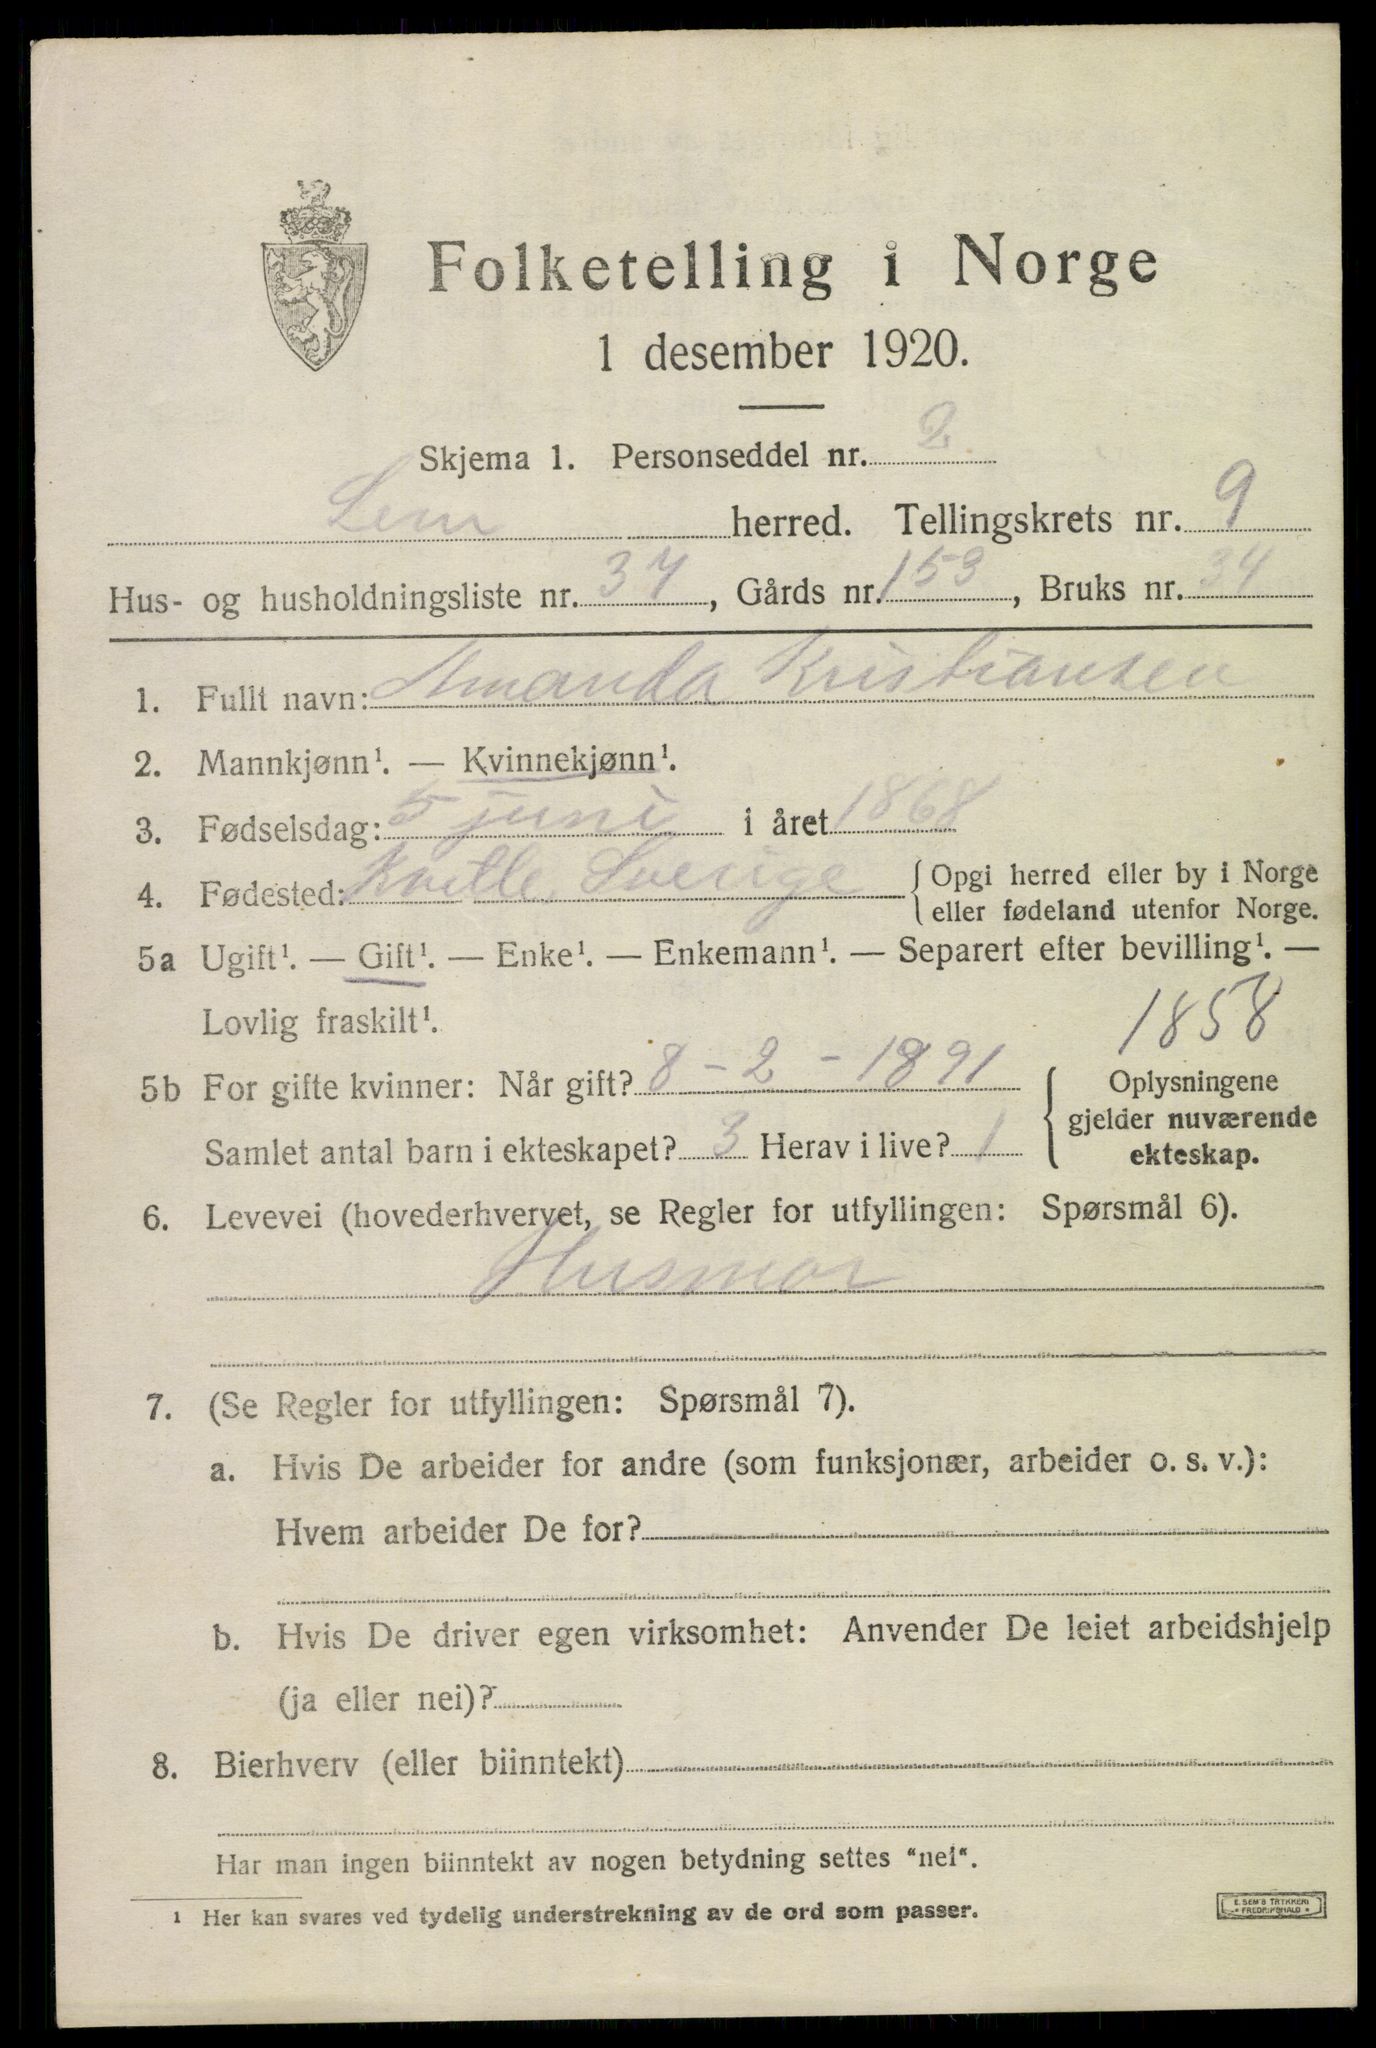 Folketelling i Norge
1 desember 1920.
Skjema 1. Personseddel nr. 2
Sem herred. Tellingskrets nr. 9
Hus- og husholdningsliste nr. 37, Gårds nr. 153, Bruks nr. 34
1. Fullt navn: Amanda Kristiansen
2. Mannkjønn¹. — Kvinnekjønn¹.
3. Fødselsdag: 5 juni i året 1868
4. Fødested: Kville, Sverige { Opgi herred eller by i Norge
eller fødeland utenfor Norge.
5a Ugift¹. — Gift¹. — Enke¹. — Enkemann¹. — Separert efter bevilling¹. —
Lovlig fraskilt¹.
1858
5b For gifte kvinner: Når gift? 8-2-1891 { Oplysningene
gjelder nuværende
Samlet antal barn i ekteskapet? 3 Herav i live? 1 ekteskap.
6. Levevei (hovederhvervet, se Regler for utfyllingen: Spørsmål 6).
Husmor
7. (Se Regler for utfyllingen: Spørsmål 7).
a. Hvis De arbeider for andre (som funksjonær, arbeider o. s. v.):
Hvem arbeider De for?
b. Hvis De driver egen virksomhet: Anvender De leiet arbeidshjelp
(ja eller nei)?
8. Bierhverv (eller biinntekt)
Har man ingen biinntekt av nogen betydning settes "nei".
¹ Her kan svares ved tydelig understrekning av de ord som passer.
E. SEM'S TRYKKERI
* FREDRIKSHALD *